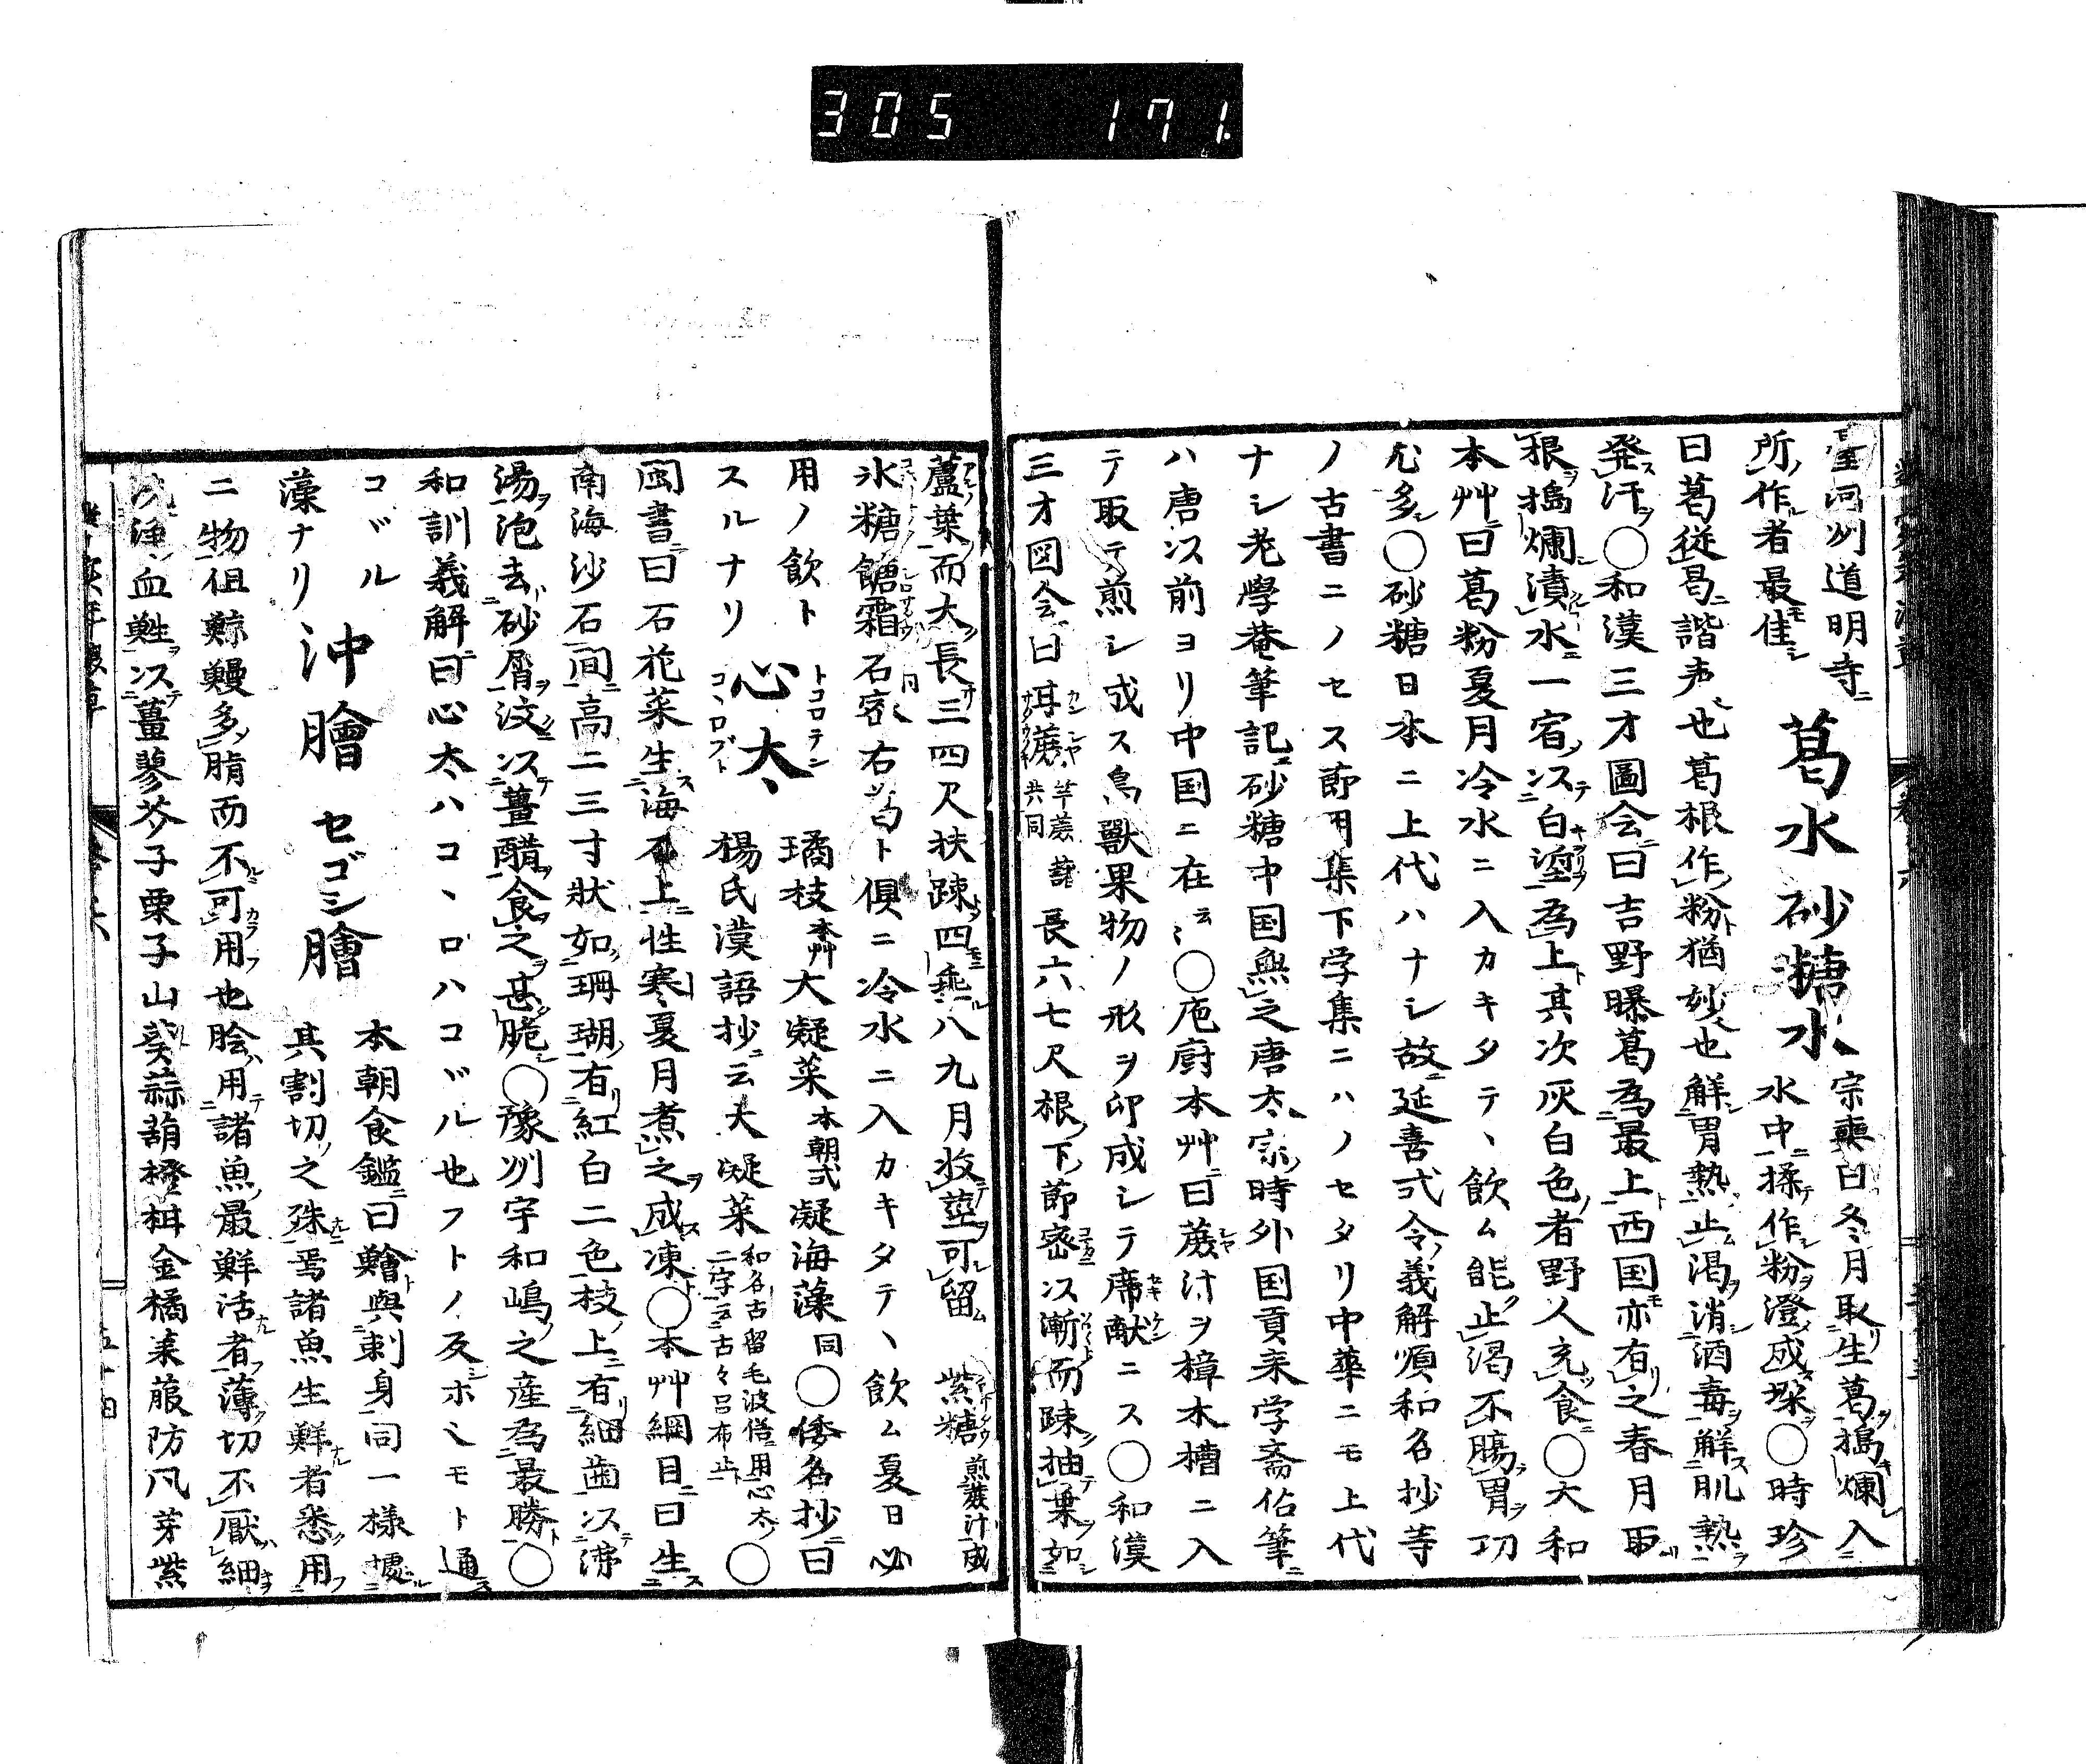 305 171.
河州道明寺
所作者最佳
葛水 砂糖水
宗奭曰冬月取生葛搗爛入
水中揉作粉澄成垜○時珍
曰葛従曷諧声也葛根作粉猶妙也解胃熱止渇消酒毒解肌熱
発汗○和漢三才圖会曰吉野曝葛為最上西国亦有之春月取
根搗爛漬水一宿以白塗為上其次灰白色者野人充食○大和
本艸曰葛粉夏月冷水ニ入カキタテヽ飲ム能止渇不腸胃功
尤多○砂糖日本ニ上代ハナシ故延喜式令義解順和名抄等
ノ古書ニノセス節用集下学集ニハノセタリ中華ニモ上代
ナシ老學菴筆記砂糖中国無之唐太宗時外国貢来学斎佔筆
ハ唐以前ヨリ中国ニ在云〻○庖厨本艸曰蔗汁ヲ樟木槽ニ入
テ取テ煎シ成ス鳥獣果物ノ形ヲ印成シテ席献ニス○和漢
三才図会曰甘蔗 竿蔗 藷 共同 長六七尺根下節密以漸而疎抽葉如
蘆葉而大長三四尺扶疎四垂八九月收莖可留 紫糖 煎蔗汁成
氷糖餹霜石密 右葛ト倶ニ冷水ニ入カキタテヽ飲ム夏日必
用ノ飲ト
スルナリ
心太 トコロテン コヽロブト
璚枝 本艸 大凝菜 本朝式 凝海藻 同 ○倭名抄曰
楊氏漢語抄云大凝菜 和名古留毛波俗用心太 二字云古々呂布止 ○
閩書曰石花菜生海石上性寒夏月煮之成凍○本艸綱目曰生
南海沙石間高二三寸状如珊瑚有紅白二色枝上有細歯以沸
湯泡去砂屑汶以薑醋食之甚脆○豫州宇和嶋之産為最勝○
和訓義解曰心太ハコヽロハコヾル也フトノ反ホヘモト通
コヾル
藻ナリ
沖膾 セゴシ膾
本朝食鑑曰鱠與刺身同一様處
其割切之殊焉諸魚生鮮者悉用
ニ物但鯨鰻多脂而不可用也膾用諸魚最鮮活者薄切不厭細
浄血以薑蓼芥子栗子山葵蒜葫橙柑金橘莱菔防風芽紫